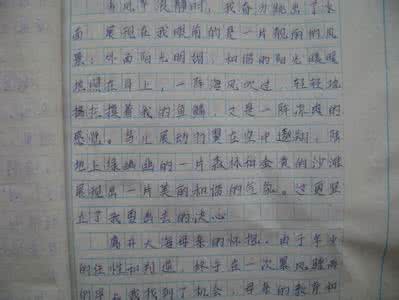 风平浪静时,我奋力跳出了水
面,展现在我眼前的是一片靓丽的风
景:外面阳光明媚,和谐的阳光暖暖
地照在身上,一阵海风吹过,轻轻地
抚摸着我的鱼鳞,又是一阵凉爽的
感觉。鸟儿展动羽翼在空中遨翔,陆
地上绿幽幽的一片森林和金黄的沙滩
展现出一片美丽和谐的气氛。这更坚
立了我要出去的决心
离开大海母亲的怀抱,由于年少
的任性和判逆,终于在一次暴风骤雨
我找到了机会,母亲的教育和